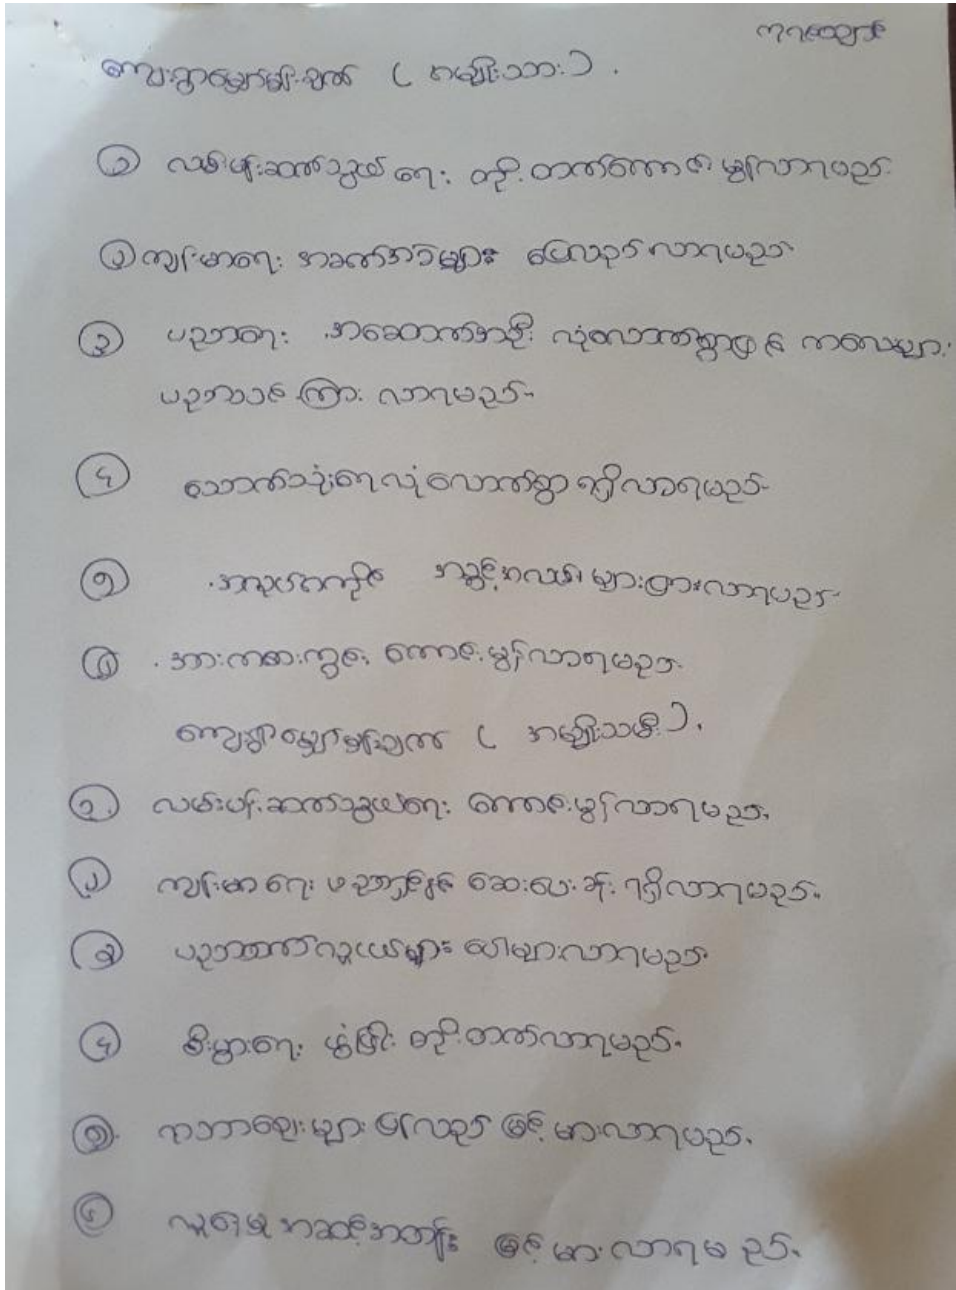 ကျေးရွာမျှော်မှန်းချက် ( အမျိုးသား ) .
၁ လမ်းပန်းဆက်သွယ်ရေး တိုးတက်ကောင်းမွန်လာရမည်.
၂ ကျန်းမာရေး အခက်အခဲများ ပြေလည်လာရမည်
၃ ပညာရေး အဆောက်အဦး လုံလောက်စွာဖြင့် ကလေးများ
ပညာသင်ကြား လာရမည်.
၄ သောက်သုံးရေလုံလောက်စွာ ရရှိလာရမည်.
၅ အလုပ်အကိုင် အခွင့်အလမ်းများများလာရမည်
၆ အားကစားကွင်း ကောင်းမွန်လာရမည်.
ကျေးရွာမျှော်မှန်းချက် ( အမျိုးသမီး ) .
၁ လမ်းပန်းဆက်သွယ်ရေး ကောင်းမွန်လာရမည်.
၂ ကျန်းမာရေး ဆေးပေးခန်း ရရှိလာရမည်.
၃ ပညာတတ်လူငယ်များ ပေါများလာရမည်
၄ စီးပွားရေး ဖွံ့ဖြိုး တိုးတက်လာရမည်.
၅ မြင့်မားလာရမည်.
၆ လူနေမှုအဆင့်အတန်း မြင့်မားလာရမည်.